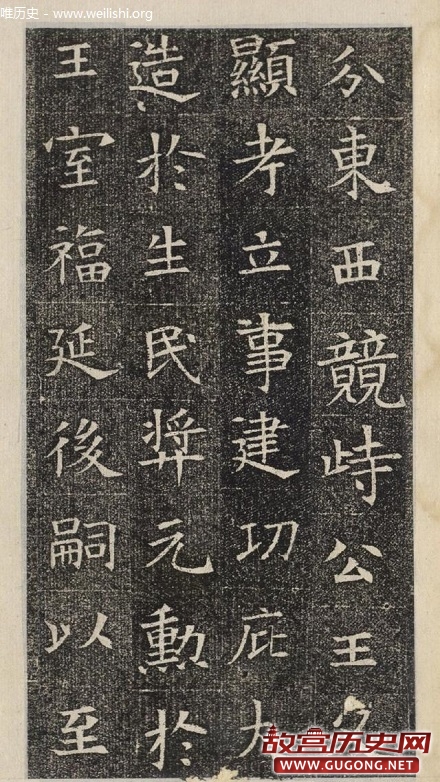 唯历史 - www.weilishi.org
分東西競峙公王父
顯考立事建功庇大
造於生民奬元勳於
王室福延後嗣以至
故宫历史网
WWW.GUGONG.NET